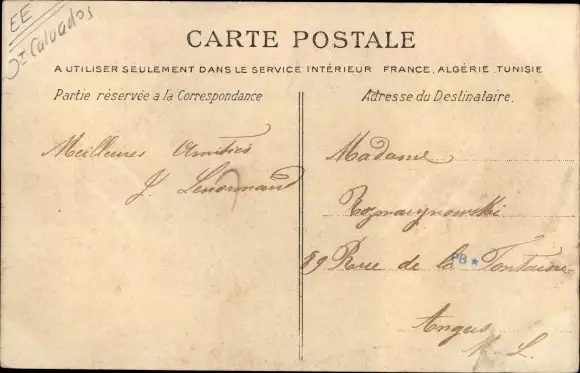 EE
Calvados
CARTE POSTALE
A UTILISER SEULEMENT DANS LE SERVICE INTÉRIEUR FRANCE, ALGÉRIE, TUNISIE
Partie réservée à la Correspondance
Adresse du Destinataire.
Meilleures Amitiés
J. Lenormand
Madame
59 Rue de la Fontaine
PB ★
Angers
M. L.